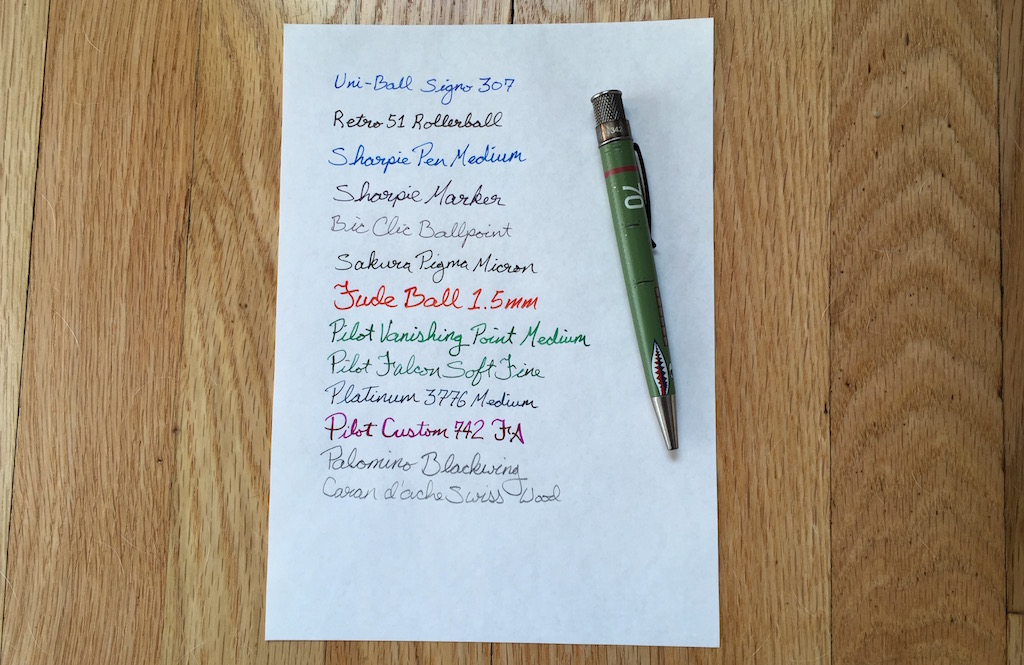 Uni-Ball Signo 307
Retro 51 Rollerball
Sharpie Pen Medium
Sharpie Marker
Bic Clic Ballpoint
Sakura Pigma Micron
Fude Ball 1.5mm
Pilot Vanishing Point Medium
Pilot Falcon Soft Fine
Platinum 3776 Medium
Pilot Custom 742 FA
Palomino Blackwing
Caran d'ache Swiss Wood
70